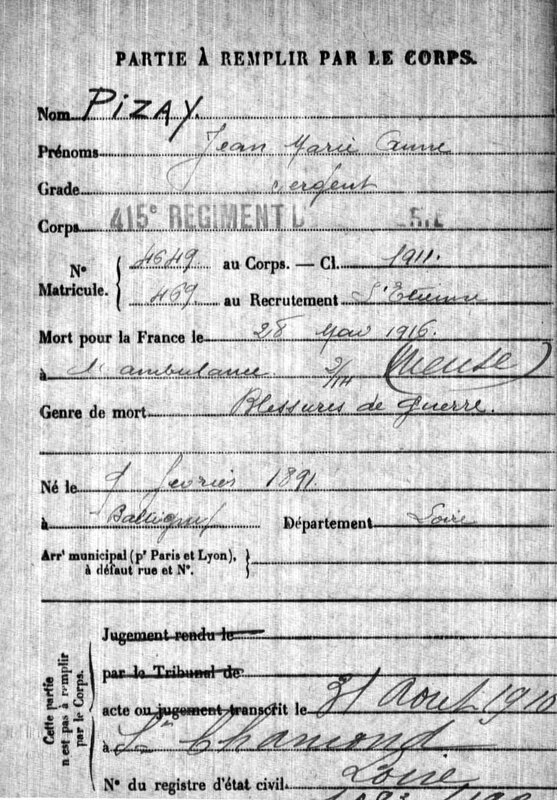 PARTIE À REMPLIR PAR LE CORPS.
Nom PIZAY.
Prénoms Jean Marie Anne
Grade Sergent
Corps 415e REGIMENT
No Matricule. 4649 au Corps. — Cl. 1911.
469 au Recrutement St Etienne
Mort pour la France le 28 Mai 1916.
à l'ambulance 2/114 (Meuse)
Genre de mort Blessures de guerre.
Né le 9 février 1891
à Balbigny Département Loire
Arrt municipal (pr Paris et Lyon), à défaut rue et No.
Cette partie n'est pas à remplir par le Corps.
Jugement rendu le
par le Tribunal de
acte ou jugement transcrit le 31 Aout
à St Chamond
Loire
No du registre d'état civil